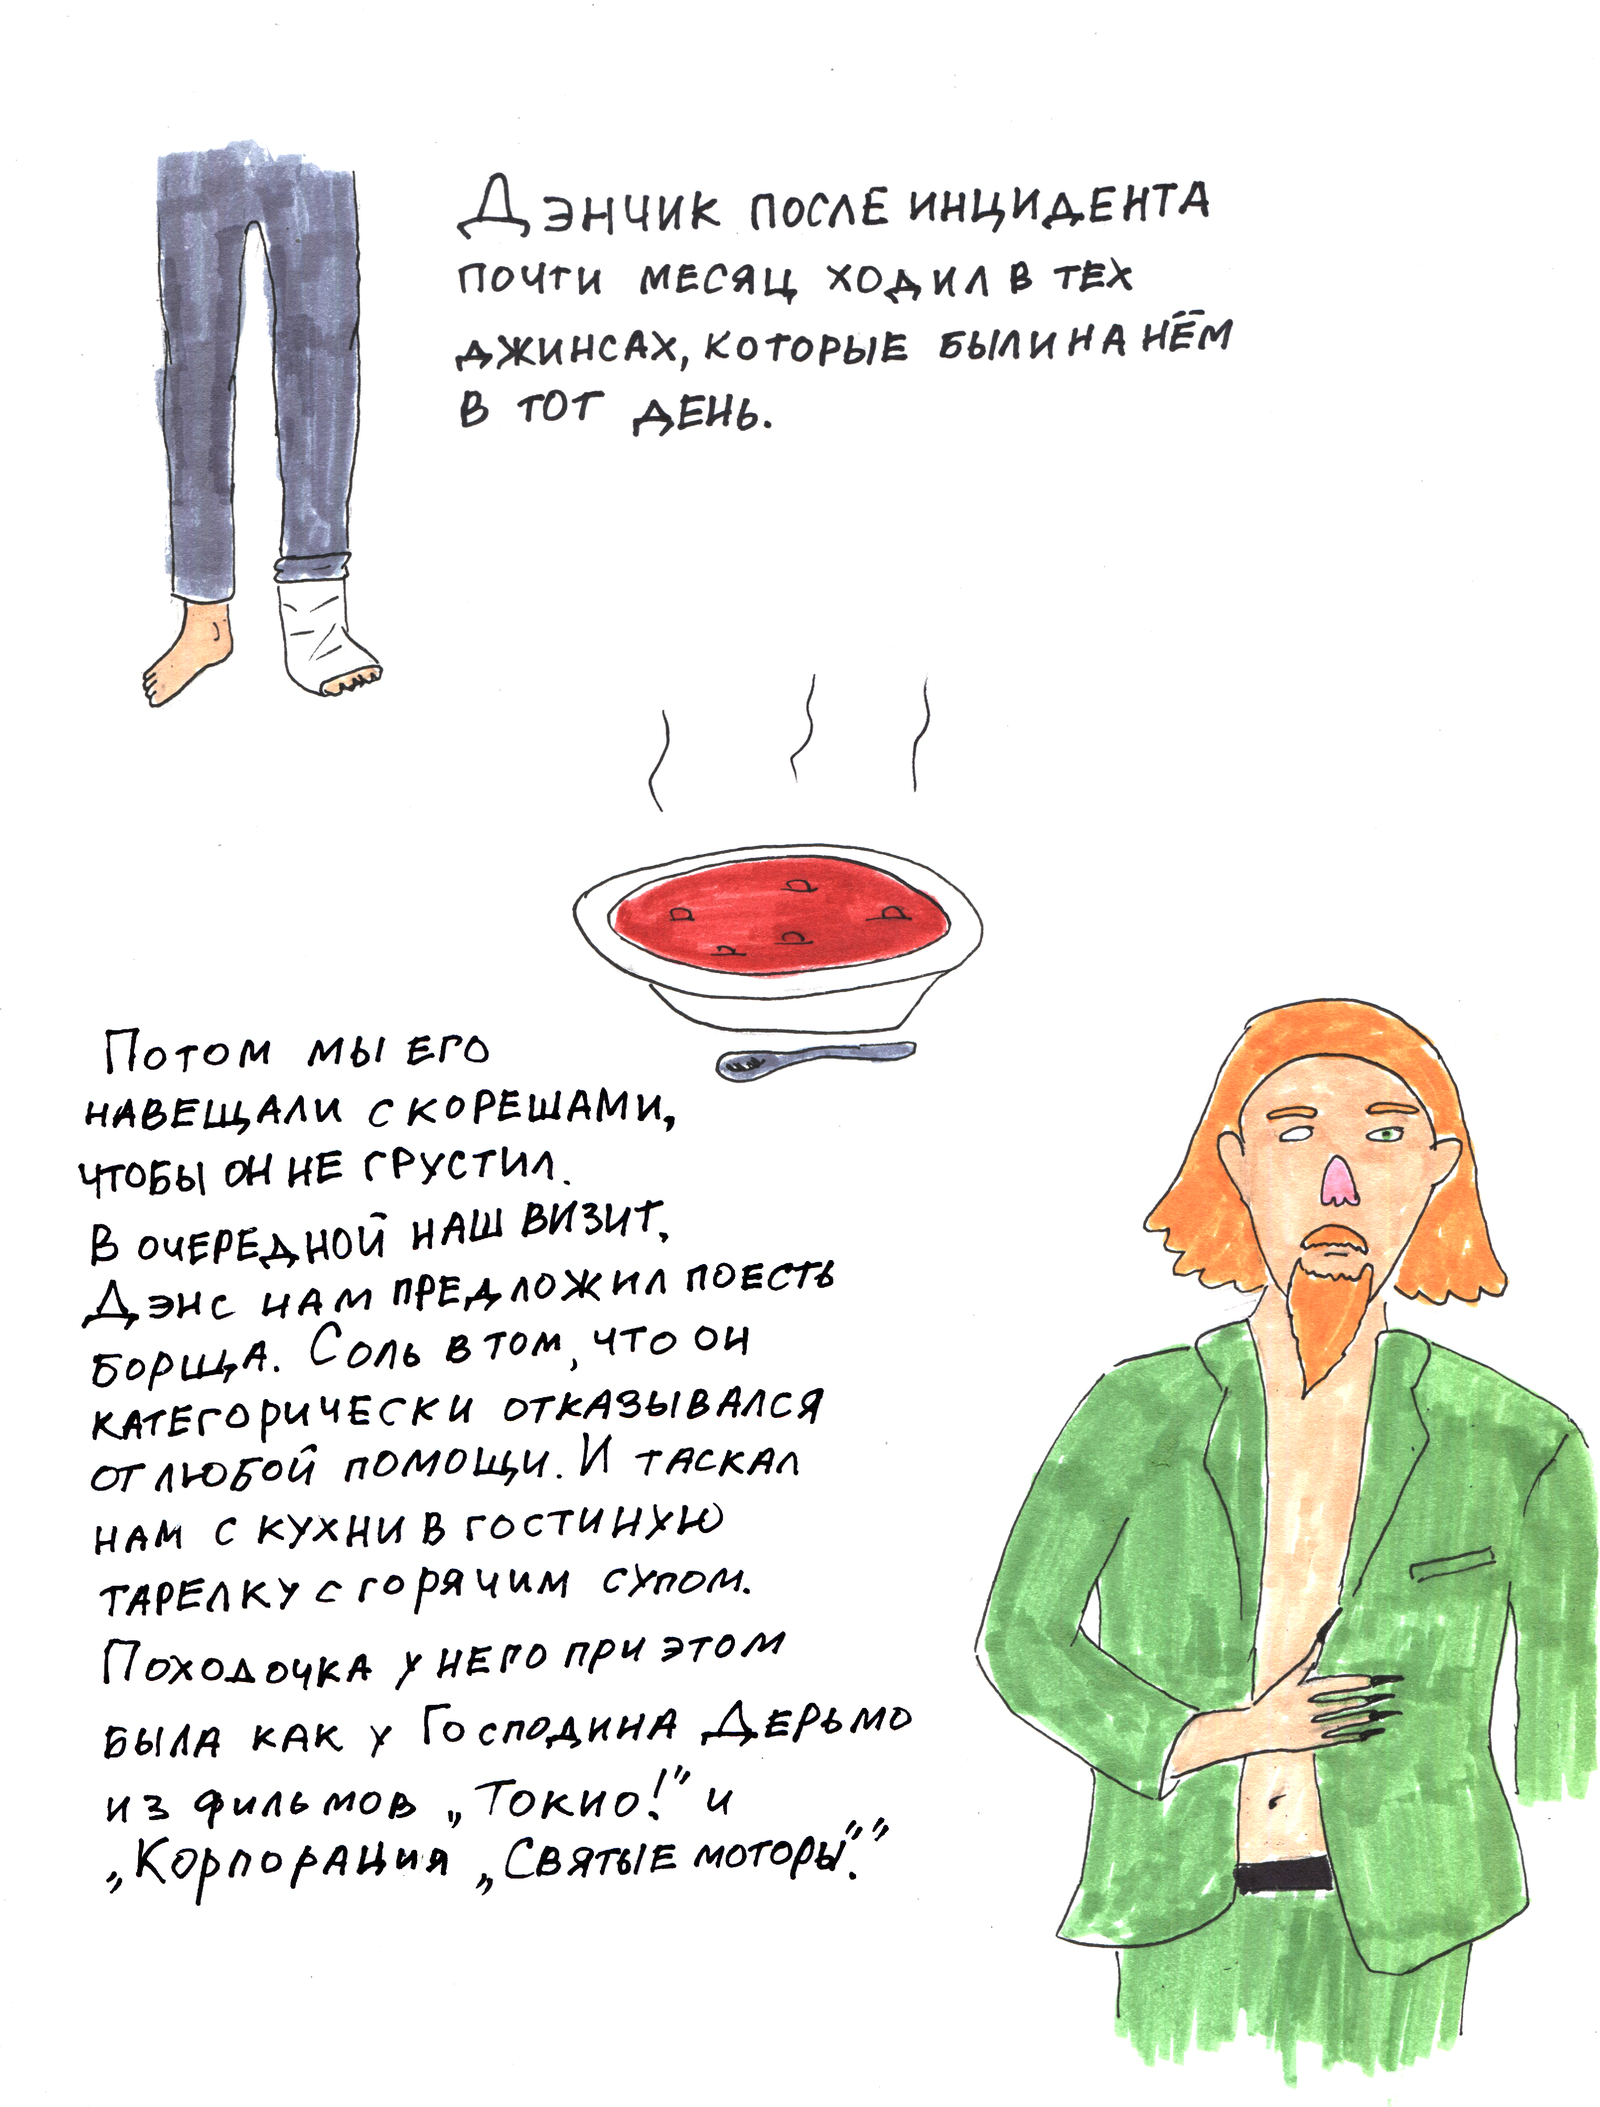 Дэнчик после инцидента
почти месяц ходил в тех
джинсах, которые были на нём
в тот день.
Потом мы его
навещали с корешами,
чтобы он не грустил.
В очередной наш визит,
Дэнс нам предложил поесть
борща. Соль в том, что он
категорически отказывался
от любой помощи. И таскал
нам с кухни в гостиную
тарелку с горячим супом.
Походочка у него при этом
была как у Господина Дерьмо
из фильмов „Токио!” и
„Корпорация „Святые моторы”.”